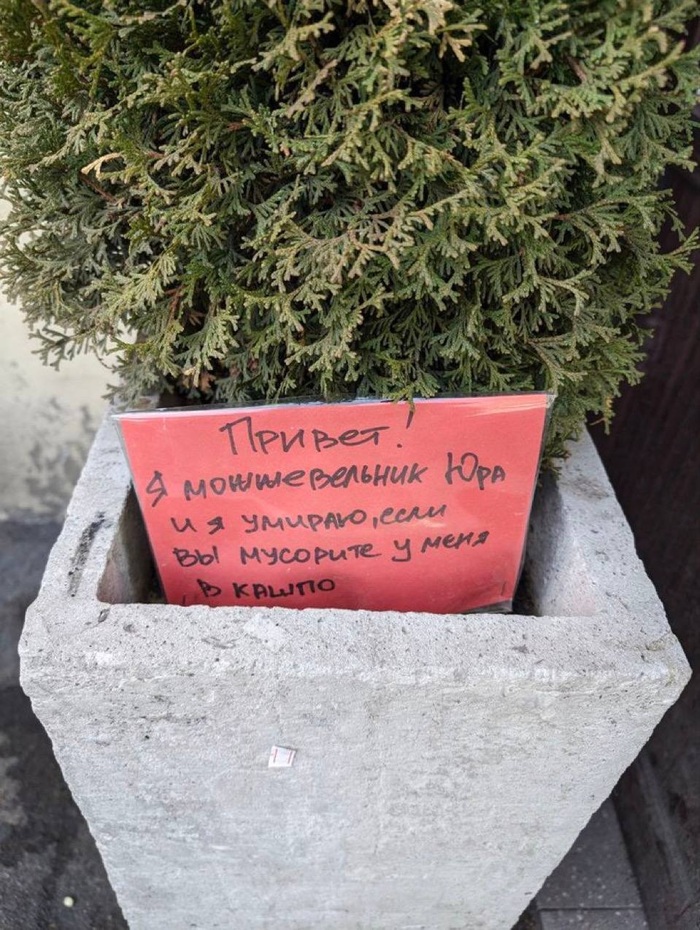 Привет!
Я можжевельник Юра
и я умираю, если
вы мусорите у меня
в кашпо